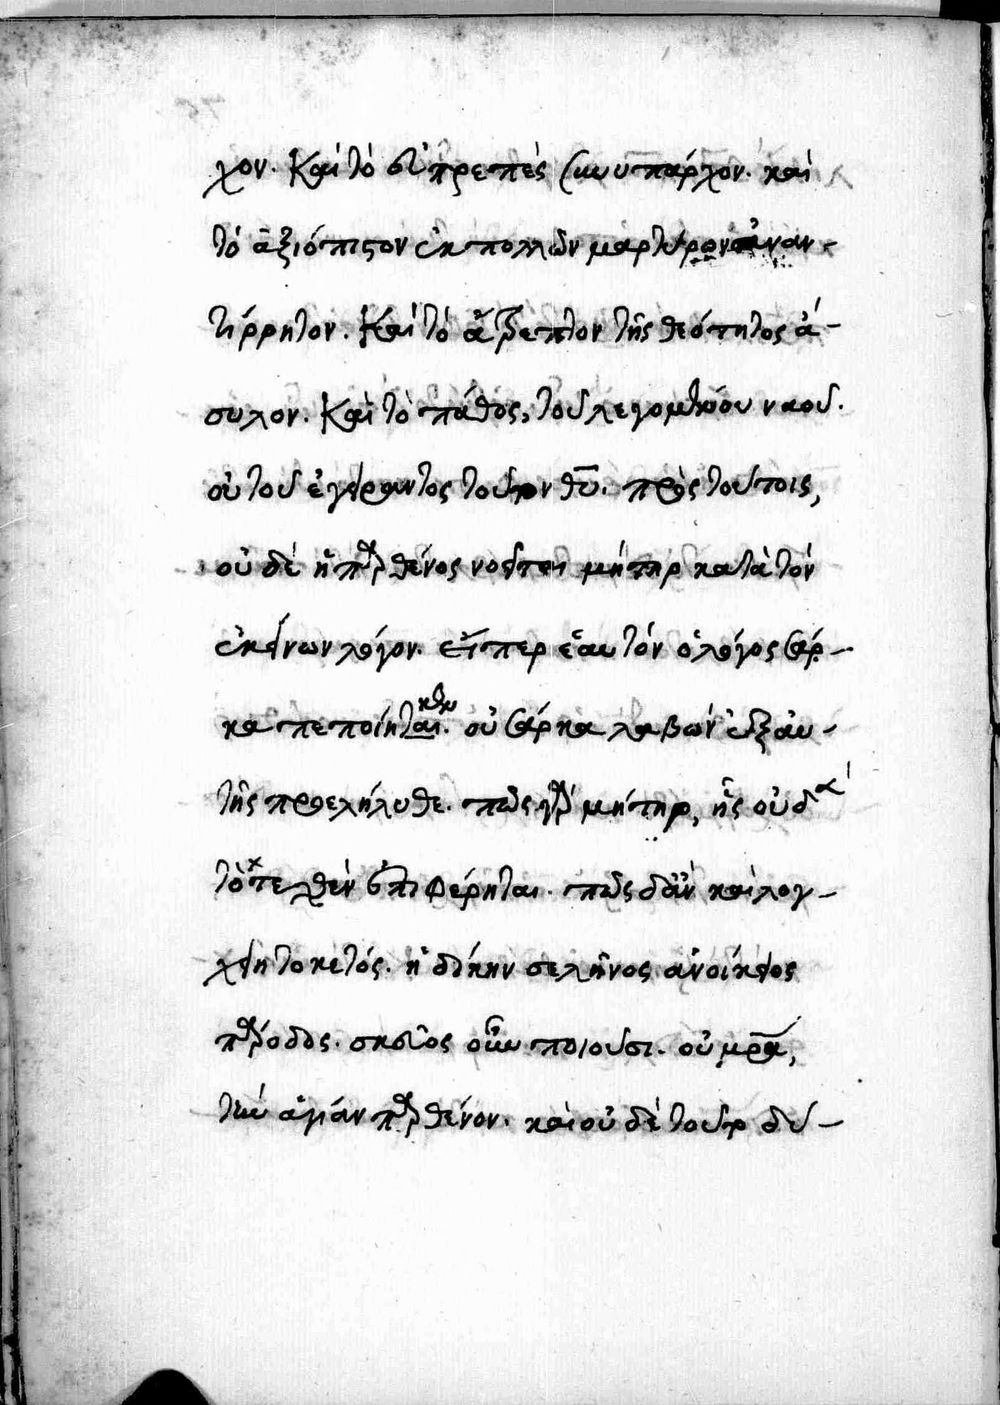 χον. Καὶ τὸ εὐπρεπὲς συνυπάρχον. καὶ
τὸ ἀξιόπιστον ἐκ πολλῶν μαρτύρων ἀναν-
τίρρητον. Καὶ τὸ ἄτρεπτον τῆς θεότητος ἄ-
συλον. Καὶ τὸ πάθος, τοῦ λεγομένου ναοῦ.
οὐ τοῦ ἐγείραντος τοῦτον θυ̅. πρὸς τούτοις,
οὐδὲ ἡ παρθένος νοεῖται μήτηρ κατὰ τὸν
ἐκείνων λόγον. εἴπερ ἑαυτὸν ὁ λόγος σάρ-
κα πεποίηται. οὐ σάρκα λαβὼν ἐξ αυ-
τῆς προελήλυθε. πῶς γὰρ μήτηρ, ἧς οὐδὲ
τὸ τεχθὲν ἐπιφέρηται. πῶς δ' ἂν καὶ λογ-
χείη τοκετός. ἡ δίκην σελῆνος ἀνοίκειος
πάροδος. σκαιῶς οὖν ποιοῦσι. οὐ μρα̅,
τὴν ἁγίαν παρθένον. καὶ οὐδὲ τοῦτο δύ-